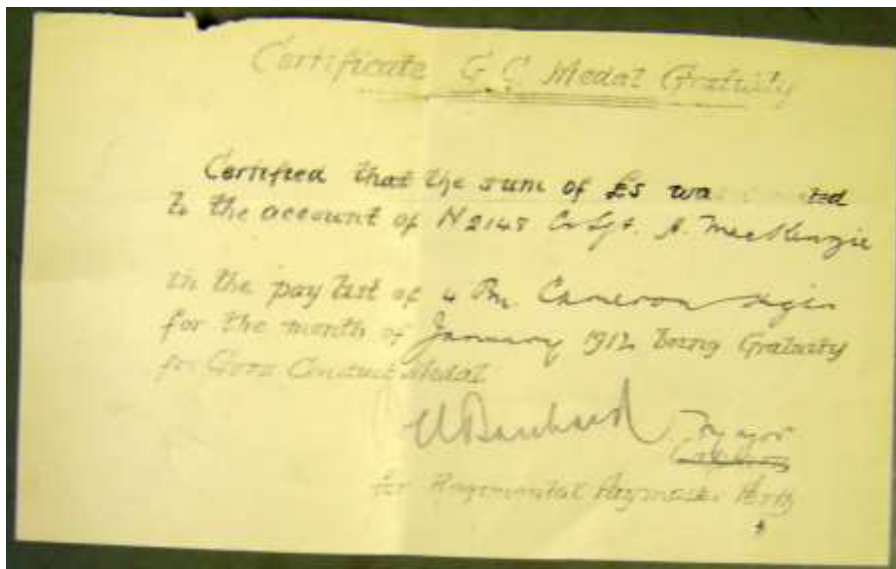 Certificate G C Medal Gratuity
Certified that the sum of £5 was ted
to the account of N 2148 Cr Sgt. A. MacKenzie
in the pay list of 4 Bn Cameron
for the month of January 1912 being Gratuity
for Good Conduct Medal
Major
for Regimental Paymaster Perth